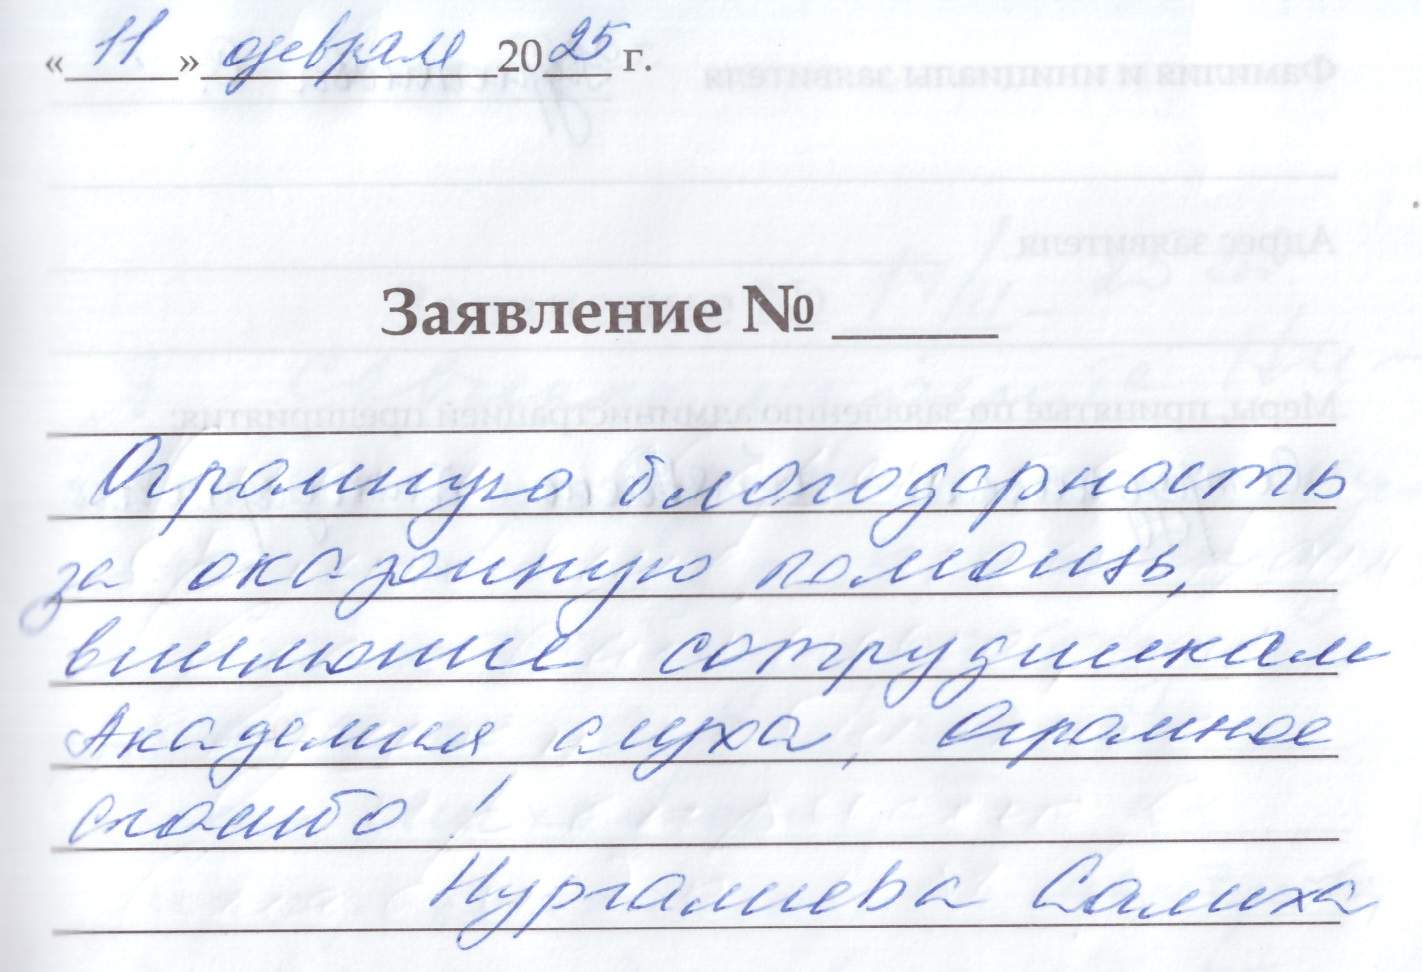 « 11 » февраля 2025 г.
Заявление № ______
Огромную благодарность
за оказанную помощь,
внимание сотрудникам
Академия слуха, Огромное
спасибо!
Нургалиева Салиха